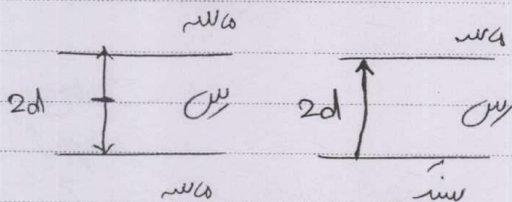 ماسه
2d
رس
ماسه
ماسه
2d
رس
سنگ